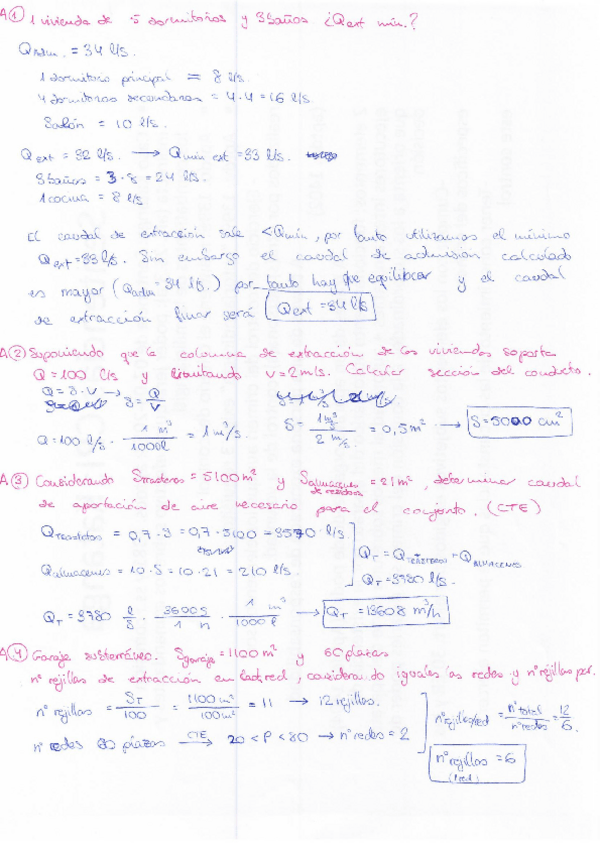 A① 1 vivienda de 5 dormitorios y 3 baños ¿Qext mín.?
Qadm. = 34 l/s.
1 dormitorio principal = 8 l/s.
4 dormitorios secundarios = 4·4 = 16 l/s.
Salón = 10 l/s.
Qext = 32 l/s. → Qmin ext = 33 l/s.
3 baños = 3·8 = 24 l/s.
1 cocina = 8 l/s
El caudal de extracción sale < Qmín, por tanto utilizamos el mínimo
Qext = 33 l/s. Sin embargo el caudal de admision calculado
es mayor (Qadm = 34 l/s.) por tanto hay que equilibrar y el caudal
de extracción final será Qext = 34 l/s
A② Suponiendo que la columna de extracción de las viviendas soporta
Q = 100 l/s y limitando v = 2 m/s. Calcular sección del conducto.
Q = S·V → S = Q/V
S = 1 m³/s / 2 m/s = 0,5 m² → S = 5000 cm²
Q = 100 l/s · 1 m³/1000 l = 1 m³/s.
A③ Considerando Strasteros = 5100 m² y Salmacenes de residuos = 21 m², determinar caudal
de aportación de aire necesario para el conjunto. (CTE)
Qtrasteros = 0,7·S = 0,7·5100 = 3570 l/s
Qalmacenes = 10·S = 10·21 = 210 l/s.
QT = QTRASTEROS + QALMACENES
QT = 3780 l/s.
QT = 3780 l/s · 3600 s/1 h · 1 m³/1000 l → QT = 13608 m³/h
A④ Garaje subterráneo. Sgaraje = 1100 m² y 60 plazas
nº rejillas de extracción en cada red, considerando iguales las redes y nº rejillas por.
nº rejillas = ST/100 = 1100 m²/100 m² = 11 → 12 rejillas.
nº redes 60 plazas CTE→ 20 < P < 80 → nº redes = 2
nº rejillas/red = nº total/nº redes = 12/6.
nº rejillas = 6
(1 red.)